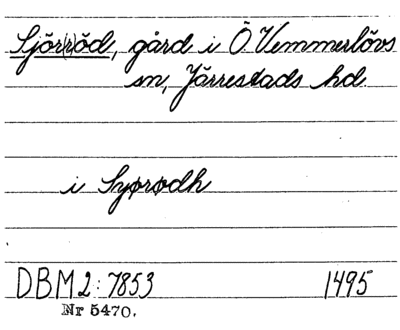 Sjör(r)öd, gård i Ö Vemmerlövs
sn, Järrestads hd.
i Syørødh
DBM 2: 7853 1495
Nr 5470.